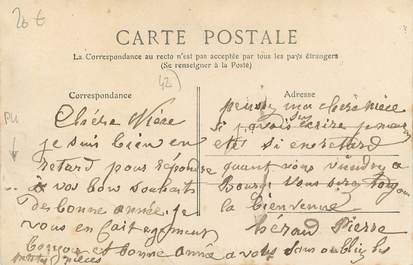 20 €
CARTE POSTALE
La Correspondance au recto n'est pas acceptée par tous les pays étrangers
(Se renseigner à la Poste)
42
Correspondance
Adresse
PLI
Chère Nièce
je suis bien en
retard pour répondre
a vos bon souhaits
de bonne année. Je
vous en fait egalment
bonjour et bonne année a vous sans oublier les
petites nièces
ma chère nièce
si j'avais su écrire
etes si en retard
quant vous viendrez a
Bourg vous serez toujour
la bienvenue
Héraud Pierre